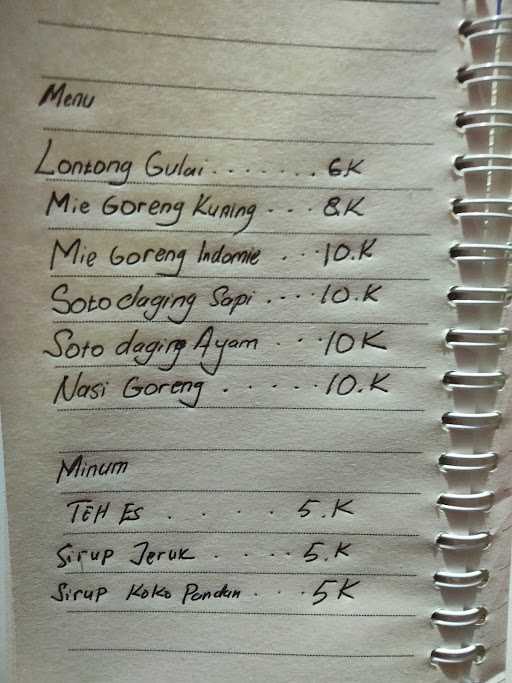 Menu
Lontong Gulai........ 6K
Mie Goreng Kuning .... 8K
Mie Goreng Indomie ... 10.K
Soto daging Sapi .... 10.K
Soto daging Ayam ... 10K
Nasi Goreng ...... 10.K
Minum
TEH ES ..... 5.K
Sirup Jeruk ..... 5.K
Sirup Koko Pandan .... 5K